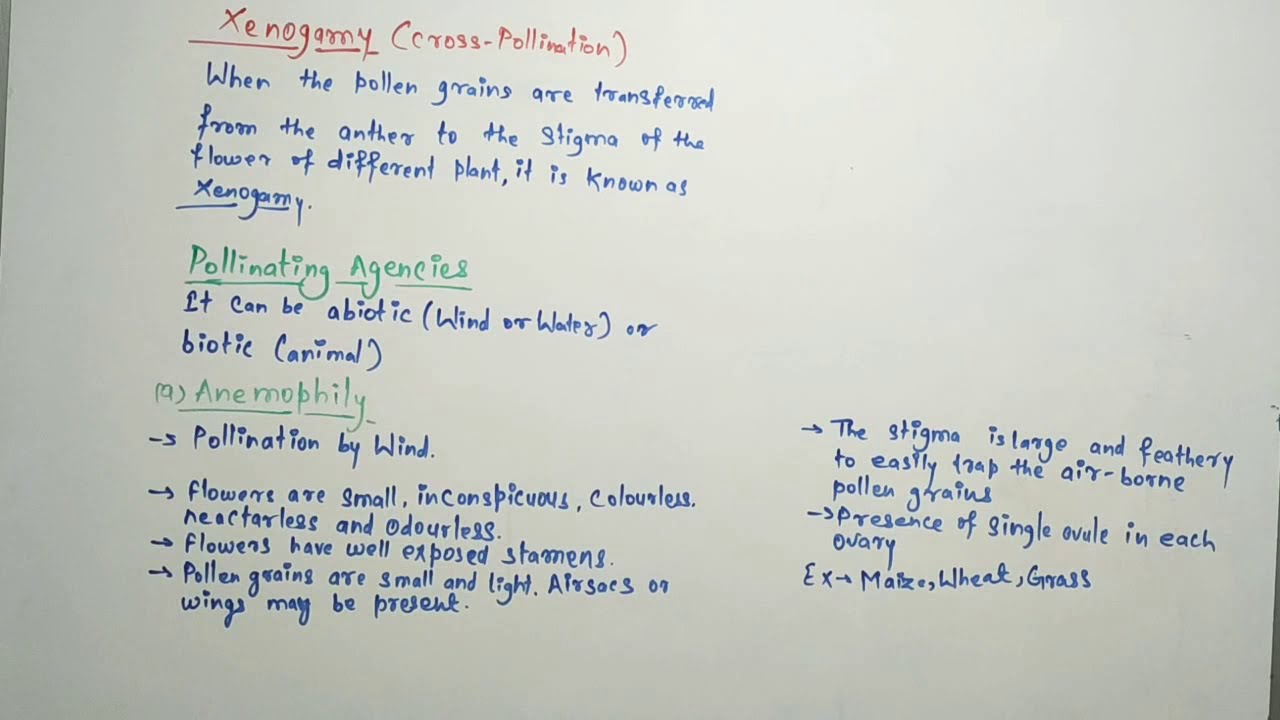 Xenogamy (Cross-Pollination)
When the pollen grains are transferred
from the anther to the stigma of the
flower of different plant, it is known as
Xenogamy.
Pollinating Agencies
It can be abiotic (Wind or Water) or
biotic (animal)
(a) Anemophily
→ Pollination by Wind.
→ Flowers are small, inconspicuous, colourless.
neactarless and odourless.
→ Flowers have well exposed stamens.
→ Pollen grains are small and light. Airsacs or
wings may be present.
→ The stigma is large and feathery
to easily trap the air-borne
pollen grains
→ Presence of single ovule in each
ovary
Ex → Maize, Wheat, Grass